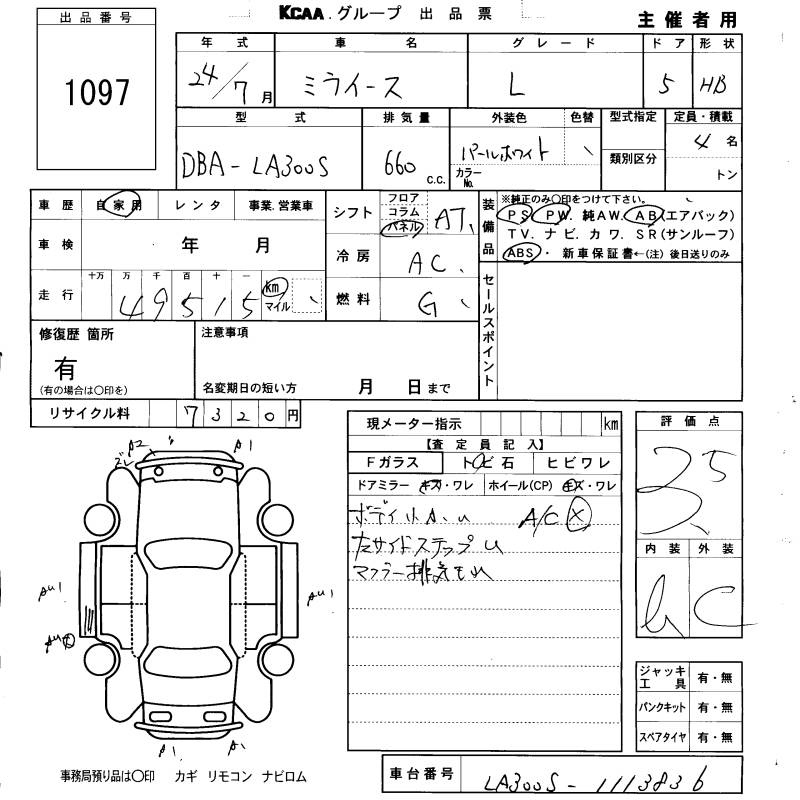 KCAA.グループ 出品票
主催者用
出品番号
1097
年式 車名 グレード ドア 形状
24/7月 ミライース L 5 HB
型式 排気量 外装色 色替 型式指定 定員・積載
DBA-LA300S 660 c.c. パールホワイト 4名
カラーNo. 類別区分 トン
車歴 自家用 レンタ 事業.営業車
車検 年 月
十万 万 千 百 十 一
走行 49515 km マイル
シフト フロア コラム パネル AT
冷房 AC
燃料 G
装備品 ※純正のみ〇印をつけて下さい。
PS. PW. 純AW. AB(エアバック)
TV. ナビ. カワ. SR(サンルーフ)
ABS・新車保証書←(注)後日送りのみ
セールスポイント
修復歴 箇所 注意事項
有
(有の場合は〇印を) 名変期日の短い方 月 日まで
リサイクル料 7320円
現メーター指示 km
【査定員記入】
Fガラス トビ石 ヒビワレ
ドアミラー キズ・ワレ ホイール(CP) キズ・ワレ
ボディ小A.U A/C X
左サイドステップU
マフラー排気もれ
評価点
3.5
内装 外装
C
ジャッキ工具 有・無
パンクキット 有・無
スペアタイヤ 有・無
A2 A1
ズレ
AU1 AU1
A1 A1
事務局預り品は〇印 カギ リモコン ナビロム
車台番号 LA300S-1113836